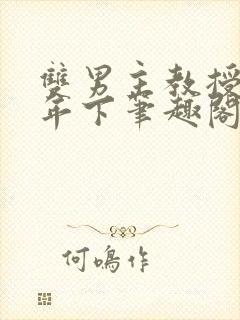 雙男主教授
年下筆趣閣
何鳴作